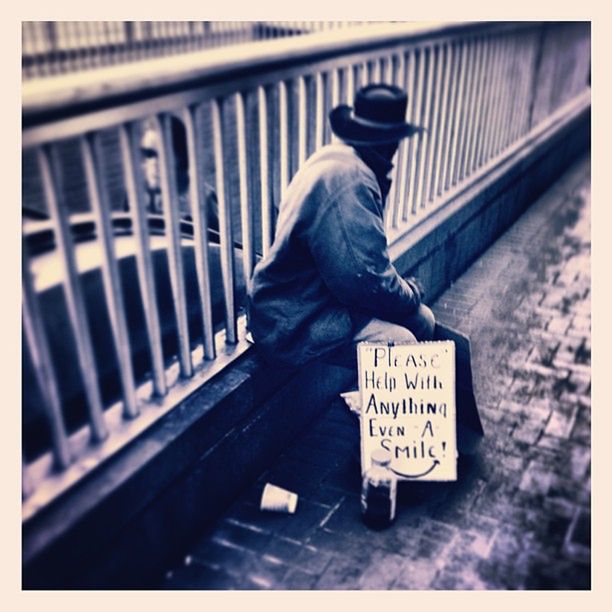 "Please"
Help With
Anything
Even -A-
Smile!